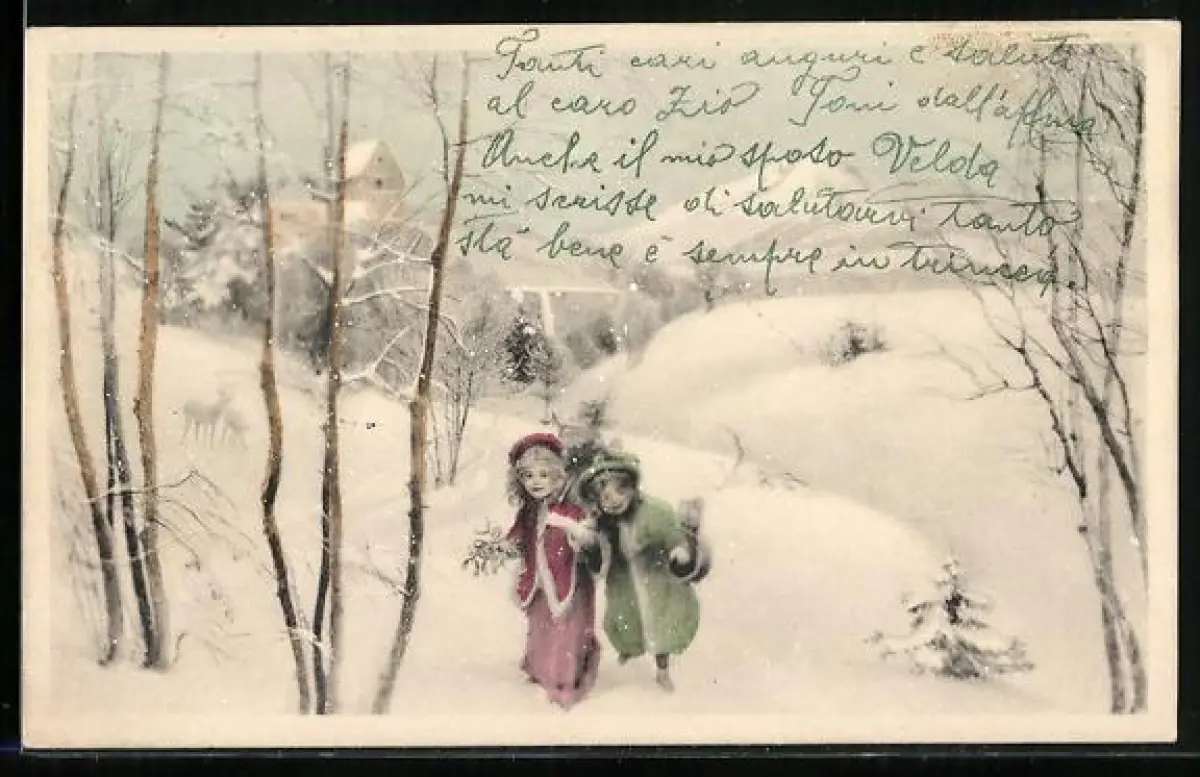 Tanti cari auguri e saluti
al caro Zio Toni dall'affma
Anche il mio sposo Velda
mi scrisse di salutarvi tanto
sta bene è sempre in trincea.